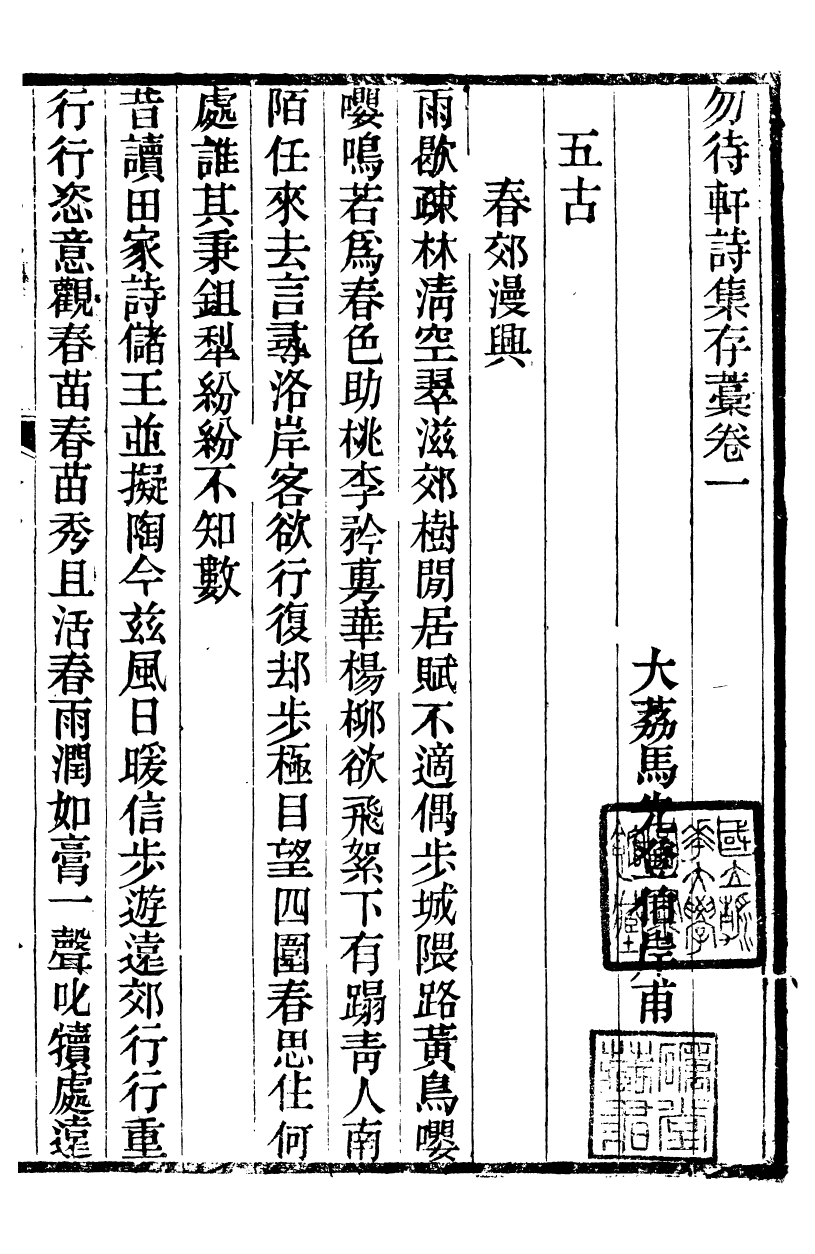 勿待軒詩集存藁卷一
大荔馬先登伯岸甫
五古
春郊漫興
雨歇疎林淸空翠滋郊樹閒居賦不適偶步城隈路黃鳥嚶
嚶鳴若爲春色助桃李矜䔢華楊柳欲飛絮下有蹋靑人南
陌任來去言尋洛岸客欲行復却步極目望四圍春思住何
處誰其秉鉏犁紛紛不知數
昔讀田家詩儲王並擬陶今茲風日暖信步遊遠郊行行重
行行恣意觀春苗春苗秀且活春雨潤如膏一聲叱犢處遠